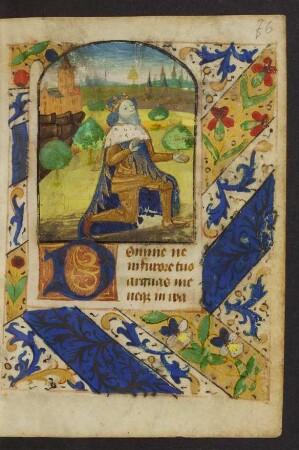 26
Domine ne
in furore tuo
arguas me
neqz in ira